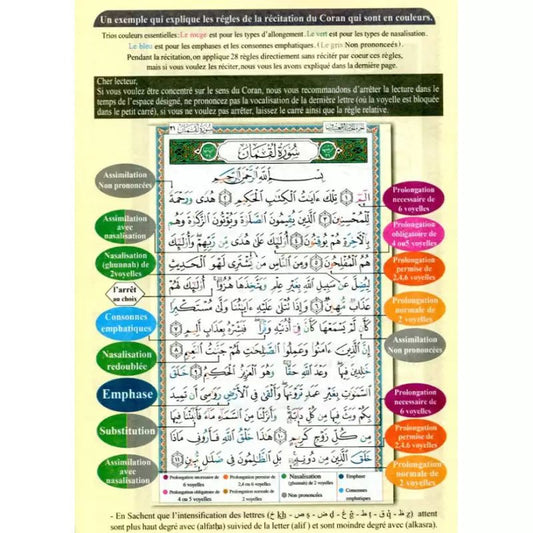 Un exemple qui explique les régles de la récitation du Coran qui sont en couleurs.
Trios couleurs essentielles: Le rouge est pour les types d'allongement. Le vert est pour les types de nasalisation.
Le bleu est pour les emphases et les consonnes emphatiques. ( Le gris Non prononcées).
Pendant la récitation, on applique 28 règles directement sans réciter par coeur ces règles,
mais si vous voulez les réciter, nous vous les avons expliqué dans la dernière page.
Cher lecteur,
Si vous voulez être concentré sur le sens du Coran, nous vous recommandons d'arrêter la lecture dans le
temps de l'espace désigné, ne prononcez pas la vocalisation de la dernière lettre (où la voyelle est bloquée
dans le petit carré), si vous ne voulez pas arrêter, laissez le carré ainsi que la règle relative.
سُورَةُ لُقْمَان
بِسْمِ اللَّهِ الرَّحْمَٰنِ الرَّحِيمِ
الٓمٓ ١ تِلْكَ ءَايَٰتُ ٱلْكِتَٰبِ ٱلْحَكِيمِ ٢ هُدًى وَرَحْمَةً
لِّلْمُحْسِنِينَ ٣ ٱلَّذِينَ يُقِيمُونَ ٱلصَّلَوٰةَ وَيُؤْتُونَ ٱلزَّكَوٰةَ وَهُم
بِٱلْءَاخِرَةِ هُمْ يُوقِنُونَ ٤ أُو۟لَٰٓئِكَ عَلَىٰ هُدًى مِّن رَّبِّهِمْ وَأُو۟لَٰٓئِكَ
هُمُ ٱلْمُفْلِحُونَ ٥ وَمِنَ ٱلنَّاسِ مَن يَشْتَرِى لَهْوَ ٱلْحَدِيثِ
لِيُضِلَّ عَن سَبِيلِ ٱللَّهِ بِغَيْرِ عِلْمٍ وَيَتَّخِذَهَا هُزُوًا أُو۟لَٰٓئِكَ لَهُمْ
عَذَابٌ مُّهِينٌ ٦ وَإِذَا تُتْلَىٰ عَلَيْهِ ءَايَٰتُنَا وَلَّىٰ مُسْتَكْبِرًا
كَأَن لَّمْ يَسْمَعْهَا كَأَنَّ فِىٓ أُذُنَيْهِ وَقْرًا فَبَشِّرْهُ بِعَذَابٍ أَلِيمٍ ٧
إِنَّ ٱلَّذِينَ ءَامَنُوا۟ وَعَمِلُوا۟ ٱلصَّٰلِحَٰتِ لَهُمْ جَنَّٰتُ ٱلنَّعِيمِ ٨
خَٰلِدِينَ فِيهَا وَعْدَ ٱللَّهِ حَقًّا وَهُوَ ٱلْعَزِيزُ ٱلْحَكِيمُ ٩ خَلَقَ
ٱلسَّمَٰوَٰتِ بِغَيْرِ عَمَدٍ تَرَوْنَهَا وَأَلْقَىٰ فِى ٱلْأَرْضِ رَوَٰسِىَ أَن تَمِيدَ
بِكُمْ وَبَثَّ فِيهَا مِن كُلِّ دَآبَّةٍ وَأَنزَلْنَا مِنَ ٱلسَّمَآءِ مَآءً فَأَنۢبَتْنَا فِيهَا
مِن كُلِّ زَوْجٍ كَرِيمٍ ١٠ هَٰذَا خَلْقُ ٱللَّهِ فَأَرُونِى مَاذَا
خَلَقَ ٱلَّذِينَ مِن دُونِهِۦ بَلِ ٱلظَّٰلِمُونَ فِى ضَلَٰلٍ مُّبِينٍ ١١
Assimilation
Non prononcées
Assimilation
avec
nasalisation
Nasalisation
(ghunnah) de
2voyelles
l'arrêt
au choix
Consonnes
emphatiques
Nasalisation
redoublée
Emphase
Substitution
Assimilation
avec
nasalisation
Prolongation
necessaire de
6 voyelles
Prolongation
obligatoire de
4 ou5 voyelles
Prolongation
permise de
2,4,6 voyelles
Prolongation
normale de
2 voyelles
Assimilation
Non prononcées
Prolongation
necessaire de
6 voyelles
Prolongation
permise de
2,4,6 voyelles
Prolongation
normale de
2 voyelles
Prolongation necessaire de
6 voyelles
Prolongation obligatoire de
4 ou 5 voyelles
Prolongation permise de
2,4 ou 6 voyelles
Prolongation normale de
2 voyelles
Nasalisation
(ghunnah) de 2 voyelles
Non prononcées
Emphase
Consonnes
emphatiques
- En Sachent que l'intensification des lettres (خ kh - ص ṣ - ض ḍ - غ ğ - ط ṭ - ق q̇ - ظ ẓ) attent
sont plus haut degré avec (alfatḥa) suivied de la letter (alif ) et sont moindre degré avec (alkasra).